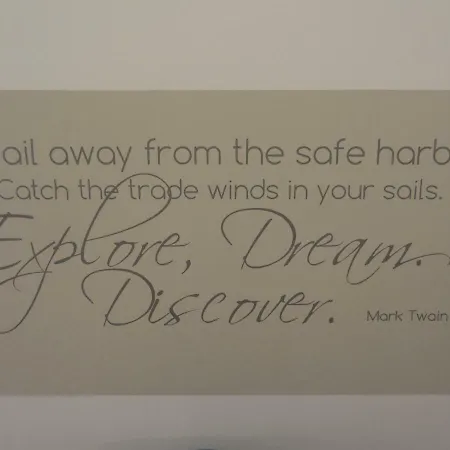 ail away from the safe harb
Catch the trade winds in your sails.
Explore, Dream.
Discover.
Mark Twain